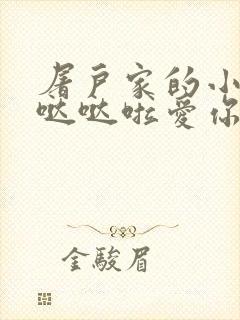 屠户家的小
哒哒啦爱你
金駿眉